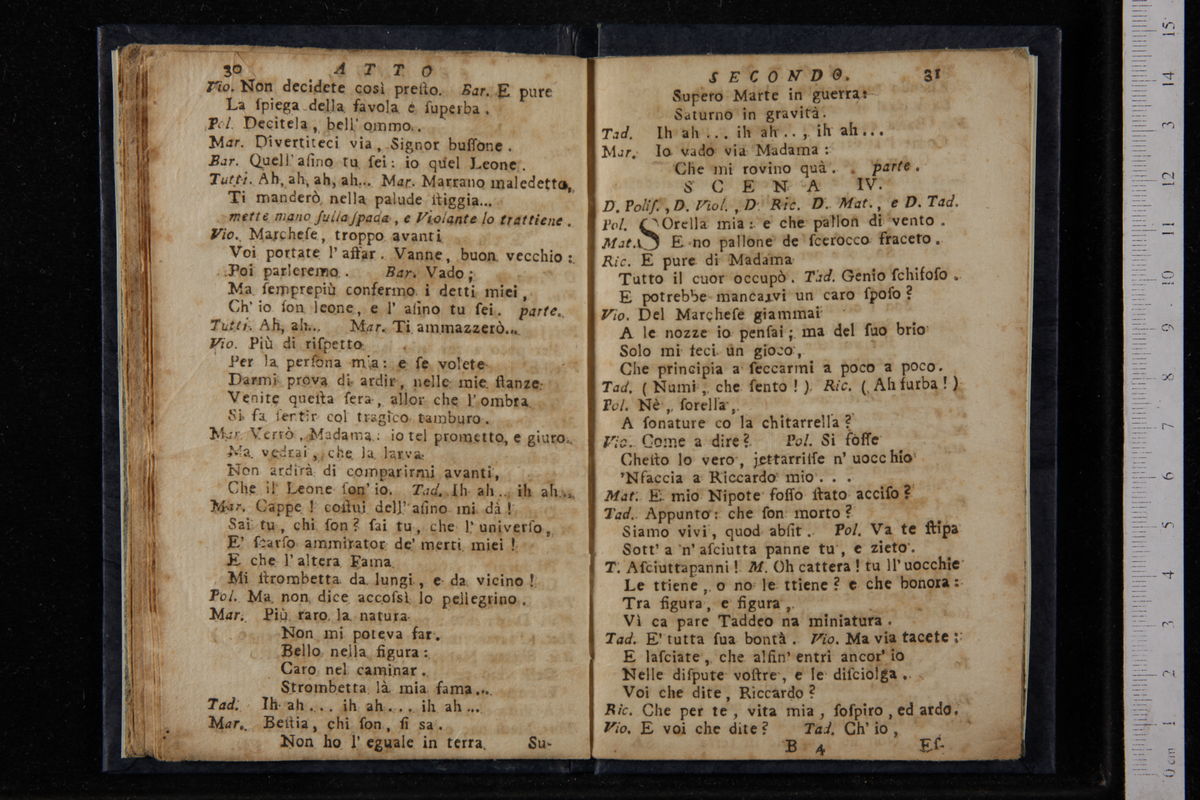 30 ATTO
Vio. Non decidete così preſto. Bar. E pure
La ſpiega della favola è ſuperba.
Pol. Decitela, bell' ommo.
Mar. Divertiteci via, Signor buffone.
Bar. Quell' aſino tu ſei: io quel Leone.
Tutti. Ah, ah, ah, ah... Mar. Marrano maledetto,
Ti manderò nella palude ſtiggia...
mette mano ſulla ſpada, e Violante lo trattiene.
Vio. Marcheſe, troppo avanti
Voi portate l' affar. Vanne, buon vecchio:
Poi parleremo. Bar. Vado;
Ma ſemprepiù confermo i detti miei,
Ch' io ſon leone, e l' aſino tu ſei. parte.
Tutti. Ah, ah... Mar. Ti ammazzerò...
Vio. Più di riſpetto
Per la perſona mia: e ſe volete
Darmi prova di ardir, nelle mie ſtanze
Venite queſta ſera, allor che l' ombra
Si fa ſentir col tragico tamburo.
Mar. Verrò, Madama: io tel prometto, e giuro.
Ma vedrai, che la larva
Non ardirà di comparirmi avanti,
Che il Leone ſon' io. Tad. Ih ah.. ih ah...
Mar. Cappe! coſtui dell' aſino mi dà!
Sai tu, chi ſon? ſai tu, che l' univerſo,
E' ſcarſo ammirator de' merti miei!
E che l' altera Fama
Mi ſtrombetta da lungi, e da vicino!
Pol. Ma non dice accoſsì lo pellegrino.
Mar. Più raro la natura
Non mi poteva far.
Bello nella figura:
Caro nel caminar.
Strombetta là mia fama...
Tad. Ih ah... ih ah... ih ah...
Mar. Beſtia, chi ſon, ſi sa.
Non ho l' eguale in terra. Su-
SECONDO. 31
Supero Marte in guerra:
Saturno in gravità.
Tad. Ih ah... ih ah.., ih ah...
Mar. Io vado via Madama:
Che mi rovino quà. parte.
SCENA IV.
D. Poliſ., D. Viol., D. Ric. D. Mat., e D. Tad.
Pol. SOrella mia: e che pallon di vento.
Mat. E no pallone de ſcerocco fraceto.
Ric. E pure di Madama
Tutto il cuor occupò. Tad. Genio ſchifoſo.
E potrebbe mancarvi un caro ſpoſo?
Vio. Del Marcheſe giammai
A le nozze io penſai; ma del ſuo brio
Solo mi feci un gioco,
Che principia a ſeccarmi a poco a poco.
Tad. (Numi, che ſento!) Ric. (Ah furba!)
Pol. Nè, ſorella,
A ſonature co la chitarrella?
Vio. Come a dire? Pol. Si foſſe
Cheſto lo vero, jettarriſſe n' uocchio
'Nfaccia a Riccardo mio...
Mat. E mio Nipote foſſo ſtato acciſo?
Tad. Appunto: che ſon morto?
Siamo vivi, quod abſit. Pol. Va te ſtipa
Sott' a n' aſciutta panne tu, e zieto.
T. Aſciuttapanni! M. Oh cattera! tu ll' uocchie
Le ttiene, o no le ttiene? e che bonora:
Tra figura, e figura,
Vì ca pare Taddeo na miniatura.
Tad. E' tutta ſua bontà. Vio. Ma via tacete:
E laſciate, che alfin' entri ancor' io
Nelle diſpute voſtre, e le diſciolga.
Voi che dite, Riccardo?
Ric. Che per te, vita mia, ſoſpiro, ed ardo.
Vio. E voi che dite? Tad. Ch' io,
B 4 Eſ-
0 cm 1 2 3 4 5 6 7 8 9 10 11 12 13 14 15